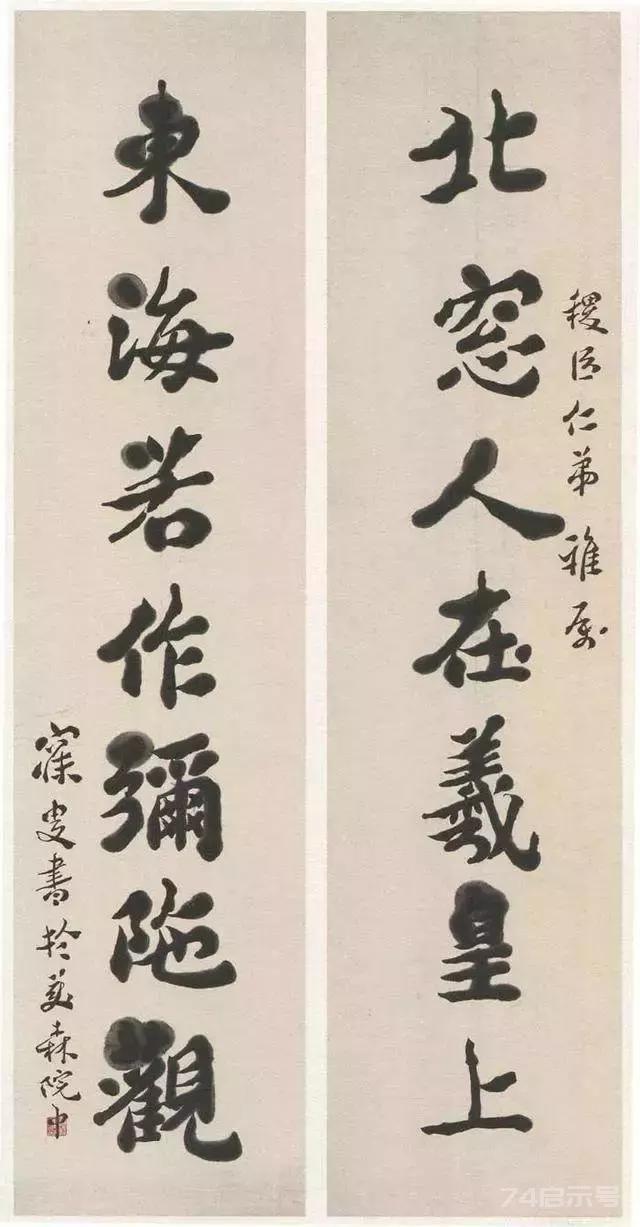 北窓人在羲皇上
稷臣仁弟雅属
東海若作彌陁觀
寐叟書於森院中
74启示号